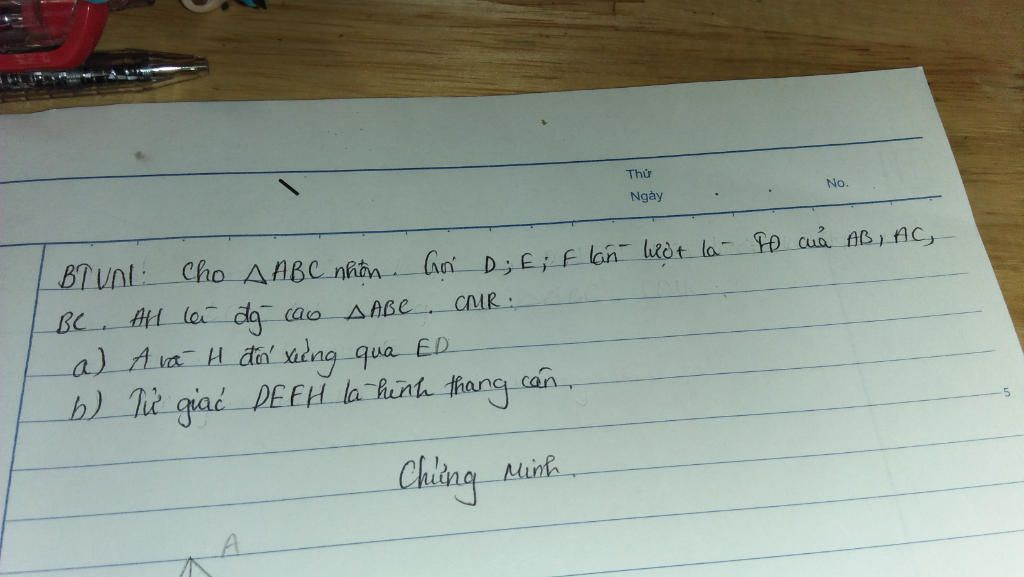 Thứ
Ngày
No.
BTVN1: Cho △ABC nhọn. Gọi D; E; F lần lượt là TĐ của AB, AC,
BC. AH là đg cao △ABC. CMR:
a) A và H đối xứng qua ED
b) Tứ giác DEFH là hình thang cân.
5
Chứng Minh.
A